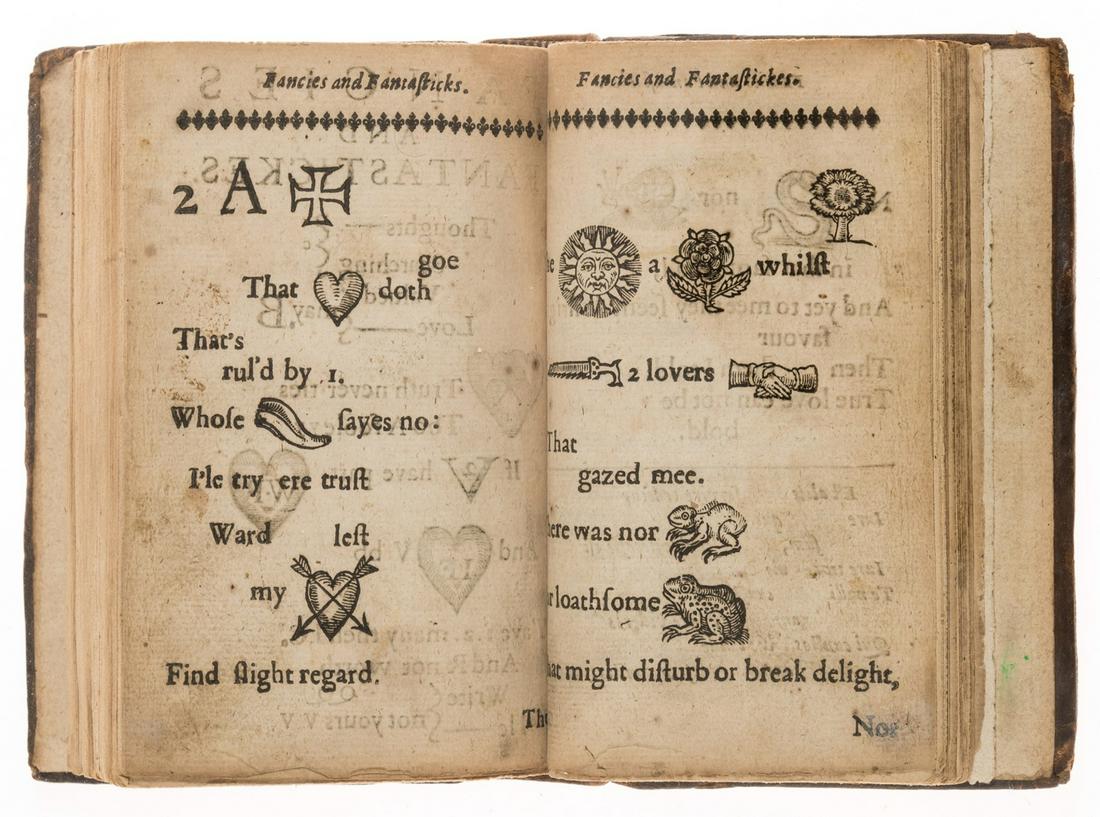 Fancies and Fantaſticks.
2 A
goe
That doth
That's
rul'd by 1.
Whoſe ſayes no:
I'le try ere truſt
Ward leſt
my
Find ſlight regard.
Fancies and Fantaſtickes.
a whilſt
2 lovers
That
gazed mee.
was nor
loathſome
might diſturb or break delight,
Nor